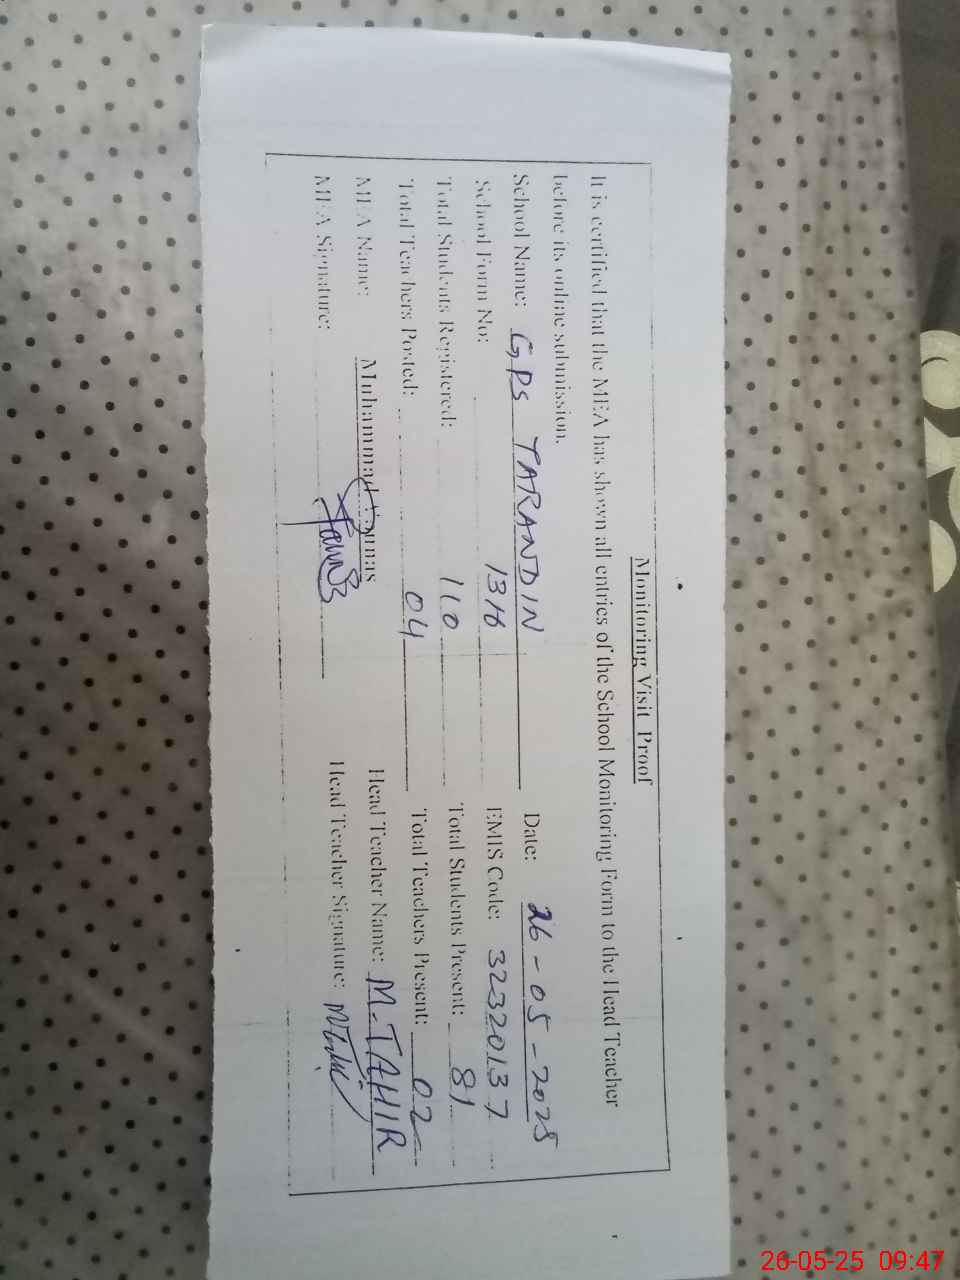 Monitoring Visit Proof
It is certified that the MEA has shown all entries of the School Monitoring Form to the Head Teacher
before its online submission.
School Name: GPS TARANDIN Date: 26-05-2025
School Form No: EMIS Code: 32320137
Total Students Registered: 110 Total Students Present: 81
Total Teachers Posted: 04 Total Teachers Present: 02
MEA Name: Muhammad Head Teacher Name: M.TAHIR
MEA Signature: Head Teacher Signature:
26-05-25 09:47